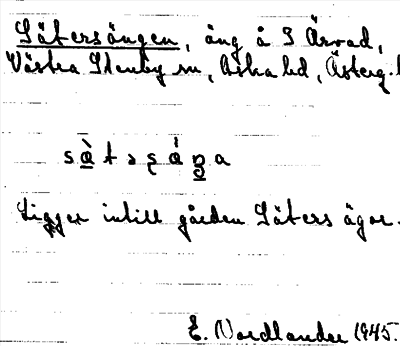 Sätersängen, äng å S Ärvad,
Västra Stenby sn, Aska hd, Österg.
Ligger intill gården Säters ägor.
E. Nordlander 1945.